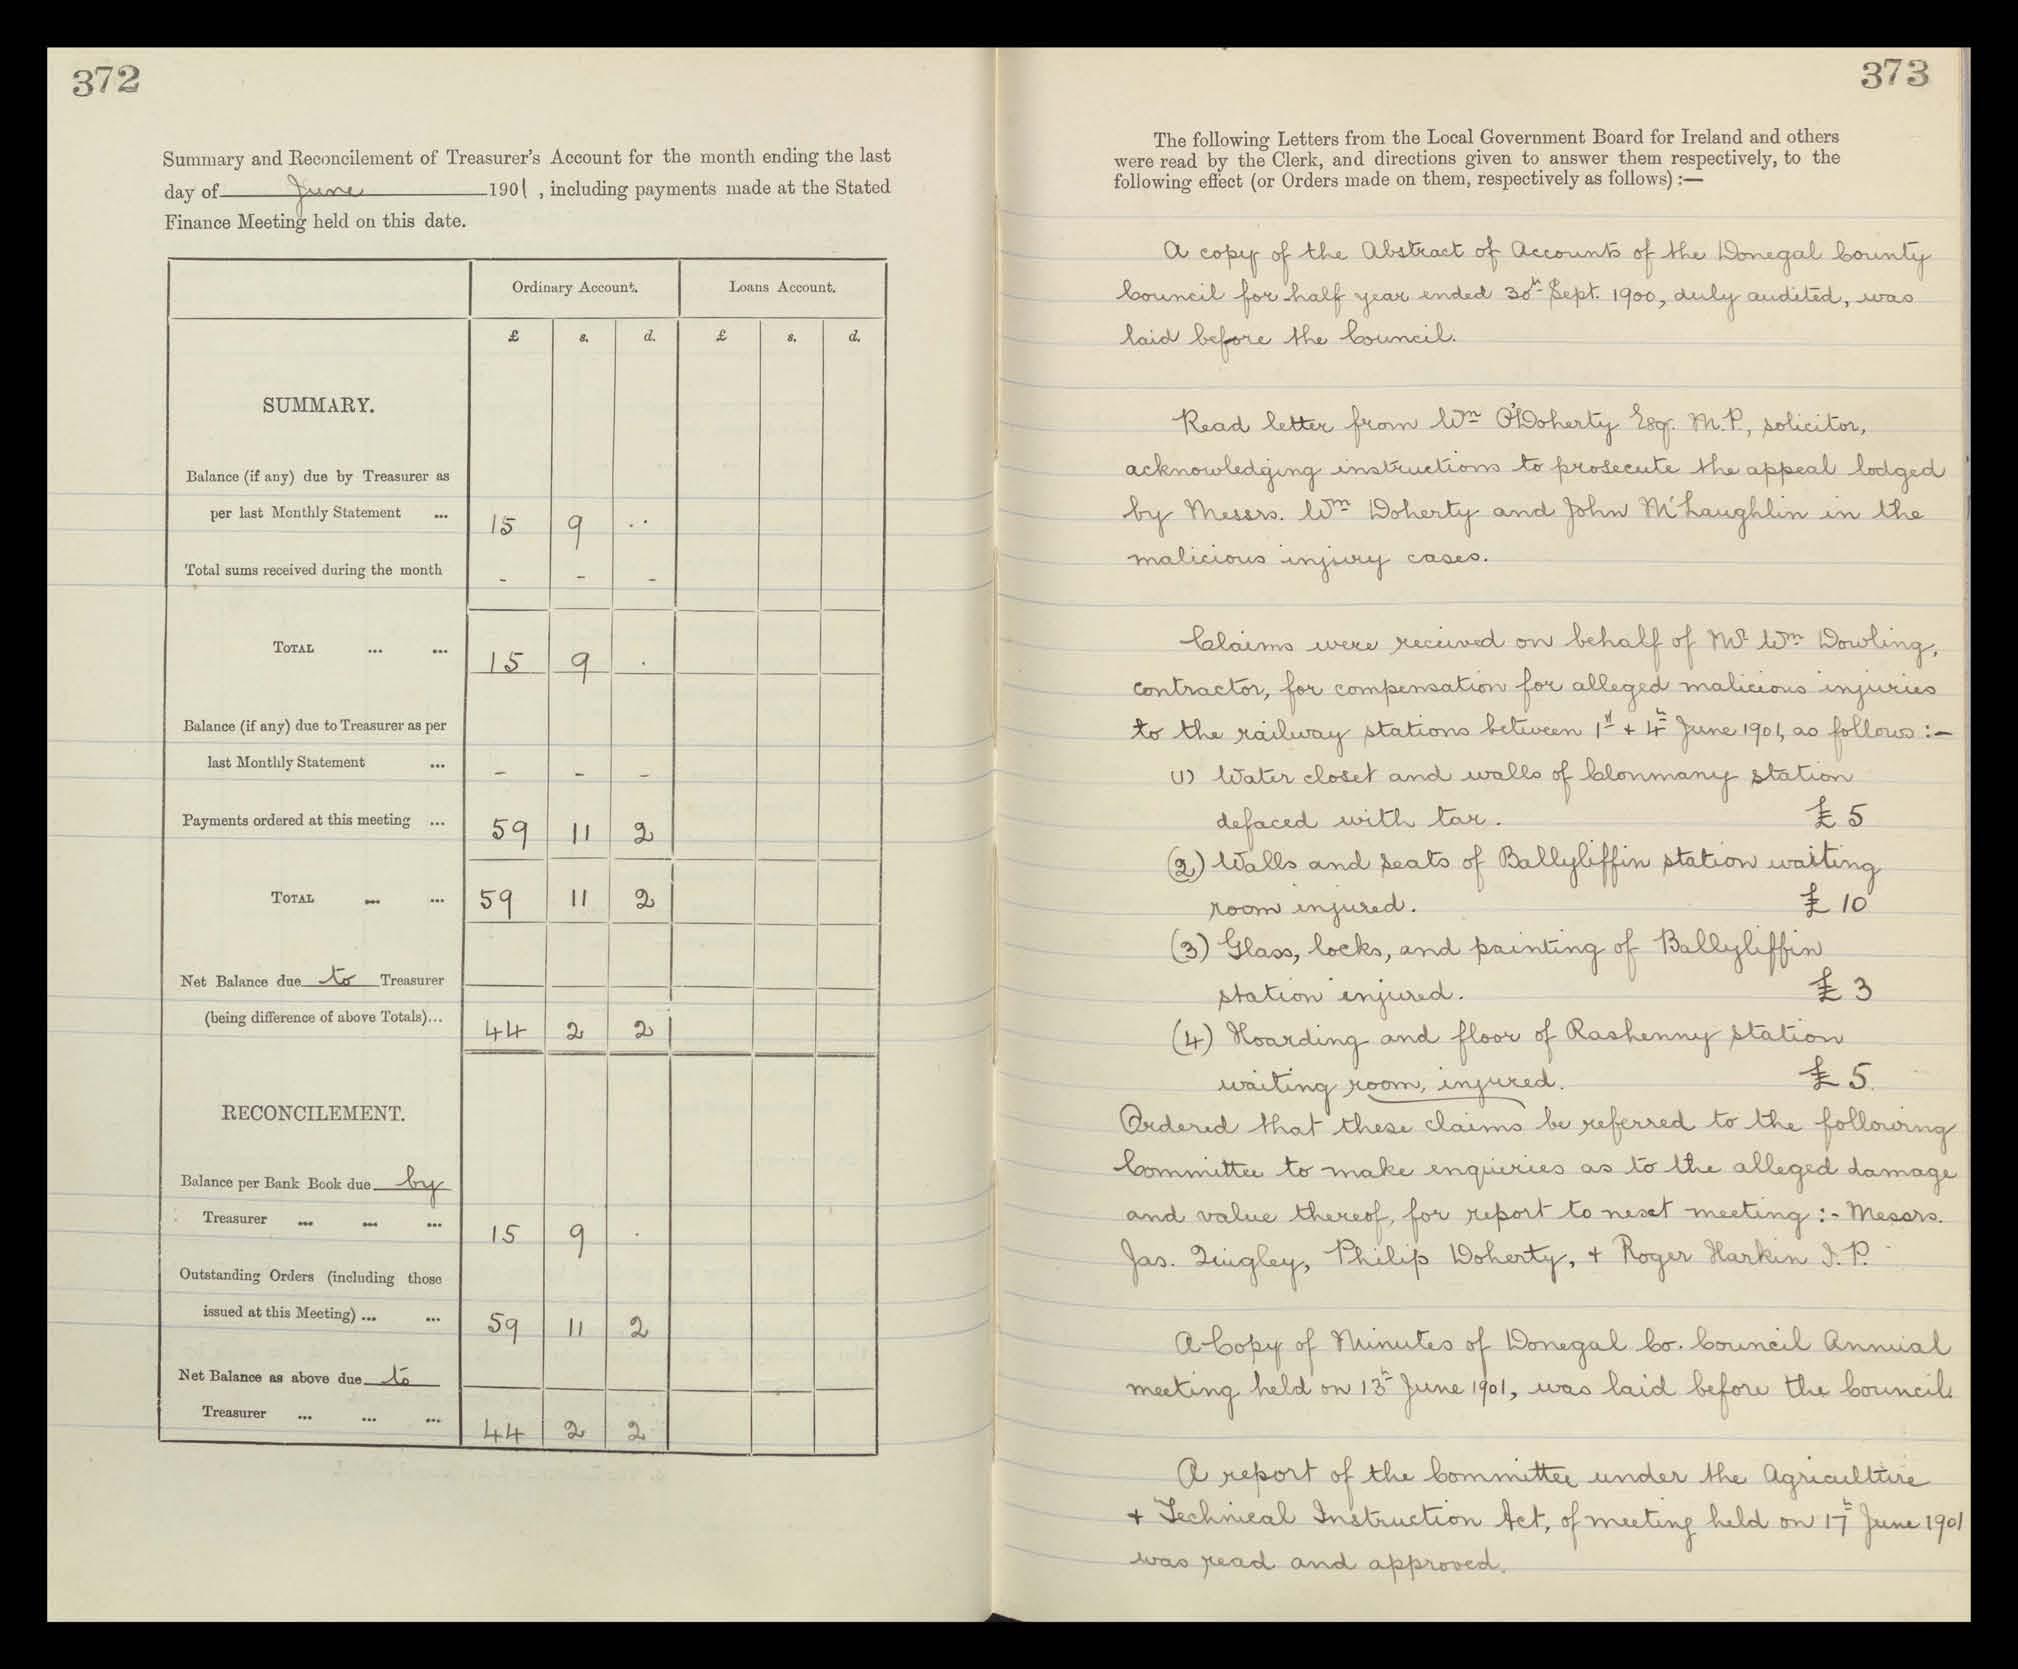 372
Summary and Reconcilement of Treasurer's Account for the month ending the last
day of June 1901, including payments made at the Stated
Finance Meeting held on this date.
Ordinary Account. Loans Account.
£ s. d. £ s. d.
SUMMARY.
Balance (if any) due by Treasurer as
per last Monthly Statement ... 15 9 . .
Total sums received during the month - - -
TOTAL ... ... 15 9 .
Balance (if any) due to Treasurer as per
last Monthly Statement ... - - -
Payments ordered at this meeting ... 59 11 2
TOTAL ... ... 59 11 2
Net Balance due to Treasurer
(being difference of above Totals)... 44 2 2
RECONCILEMENT.
Balance per Bank Book due by
Treasurer ... ... ... 15 9 .
Outstanding Orders (including those
issued at this Meeting) ... ... 59 11 2
Net Balance as above due to
Treasurer ... ... ... 44 2 2
373
The following Letters from the Local Government Board for Ireland and others
were read by the Clerk, and directions given to answer them respectively, to the
following effect (or Orders made on them, respectively as follows) :—
A copy of the Abstract of Accounts of the Donegal County
Council for half year ended 30th Sept. 1900, duly audited, was
laid before the Council.
Read letter from Wm O'Doherty Esq. M.P., solicitor,
acknowledging instructions to prosecute the appeal lodged
by Messrs. Wm Doherty and John McLaughlin in the
malicious injury cases.
Claims were received on behalf of Mr Wm Dowling,
contractor, for compensation for alleged malicious injuries
to the railway stations between 1st + 4th June 1901, as follows :-
(1) Water closet and walls of Clonmany station
defaced with tar. £5
(2) Walls and seats of Ballyliffin station waiting
room injured. £10
(3) Glass, locks, and painting of Ballyliffin
station injured. £3
(4) Hoarding and floor of Rashenny station
waiting room, injured. £5.
Ordered that these claims be referred to the following
Committee to make enquiries as to the alleged damage
and value thereof, for report to next meeting :- Messrs.
Jas. Quigley, Philip Doherty, + Roger Harkin J.P.
A Copy of Minutes of Donegal Co. Council Annual
meeting held on 13th June 1901, was laid before the Council.
A report of the Committee under the Agriculture
+ Technical Instruction Act, of meeting held on 17th June 1901
was read and approved.